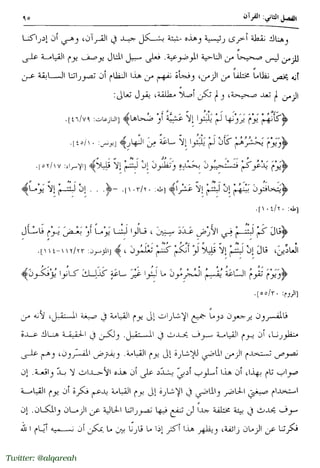 الفصل الثاني: القرآن
٩٥
وهناك نقطة أخرى رئيسية وهذه مثبتة بشكل جيد في القرآن، وهي أن إدراكنا
للزمن ليس صحيحاً من الناحية الموضوعية. فعلى سبيل المثال يوصف يوم القيامة على
أنه يخص نظاماً مختلفاً من الزمن، وفجأة نفهم من هذه أن النظام أن تصوراتنا السابقة عن
الزمن لم تعد صحيحة، و لم تكن أصلاً مطلقة، يقول تعالى:
﴿كَأَنَّهُمْ يَوْمَ يَرَوْنَهَا لَمْ يَلْبَثُوا إِلاَّ عَشِيَّةً أَوْ ضُحَاهَا﴾ [النازعات: ٤٦/٧٩].
﴿وَيَوْمَ يَحْشُرُهُمْ كَأَنْ لَمْ يَلْبَثُوا إِلاَّ سَاعَةً مِنَ النَّهارِ﴾ [يونس: ٤٥/١٠].
﴿يَوْمَ يَدْعُوكُمْ فَتَسْتَجِيبُونَ بِحَمْدِهِ وَتَظُنُّونَ إِنْ لَبِثْتُمْ إِلاَّ قَلِيلاً﴾ [الإسراء: ٥٢/١٧].
﴿يَتَخافَتُونَ بَيْنَهُمْ إِنْ لَبِثْتُمْ إِلاَّ عَشْراً﴾ [طه: ١٠٣/٢٠]. - ﴿. . . إِنْ لَبِثْتُمْ إِلاَّ يَوْماً﴾
[طه: ١٠٤/٢٠].
﴿قالَ كَمْ لَبِثْتُمْ فِي الأَرْضِ عَدَدَ سِنِينَ ، قالُوا لَبِثْنا يَوْماً أَوْ بَعْضَ يَوْمٍ فَاسْأَلِ
الْعادِّينَ، قالَ إِنْ لَبِثْتُمْ إِلاَّ قَلِيلاً لَوْ أَنَّكُمْ كُنْتُمْ تَعْلَمُونَ﴾ [المؤمنون: ١١٢/٢٣-١١٤].
﴿وَيَوْمَ تَقُومُ السَّاعَةُ يُقْسِمُ الْمُجْرِمُونَ ما لَبِثُوا غَيْرَ ساعَةٍ كَذلِكَ كانُوا يُؤْفَكُونَ﴾
[الروم: ٥٥/٣٠].
فالمفسرون يرجعون دوماً جميع الإشارات إلى يوم القيامة في صيغة المستقبل، لأنه من
منظورنا، أن يوم القيامة سوف يحدث في المستقبل. ولكن في الحقيقة هناك عدة
نصوص تستخدم الزمن الماضي للإشارة إلى يوم القيامة. ويفترض المفسرون، وهم على
صواب تام بهذا، أن هذا أسلوب أدبي يشدّد على أن هذه الأحداث لا بدّ واقعة. إن
استخدام صيغتي الحاضر والماضي في الإشارة إلى يوم القيامة يدعم فكرة أن يوم القيامة
سوف يحدث في بيئة مختلفة جداً لن تنفع فيها تصوراتنا الحالية عن الزمان والمكان. إن
فكرتنا عن الزمان زائفة، ويظهر هذا أكثر إذا ما قارنّا بين ما يمكن أن نسميه أيّام الله
Twitter: @alqareah